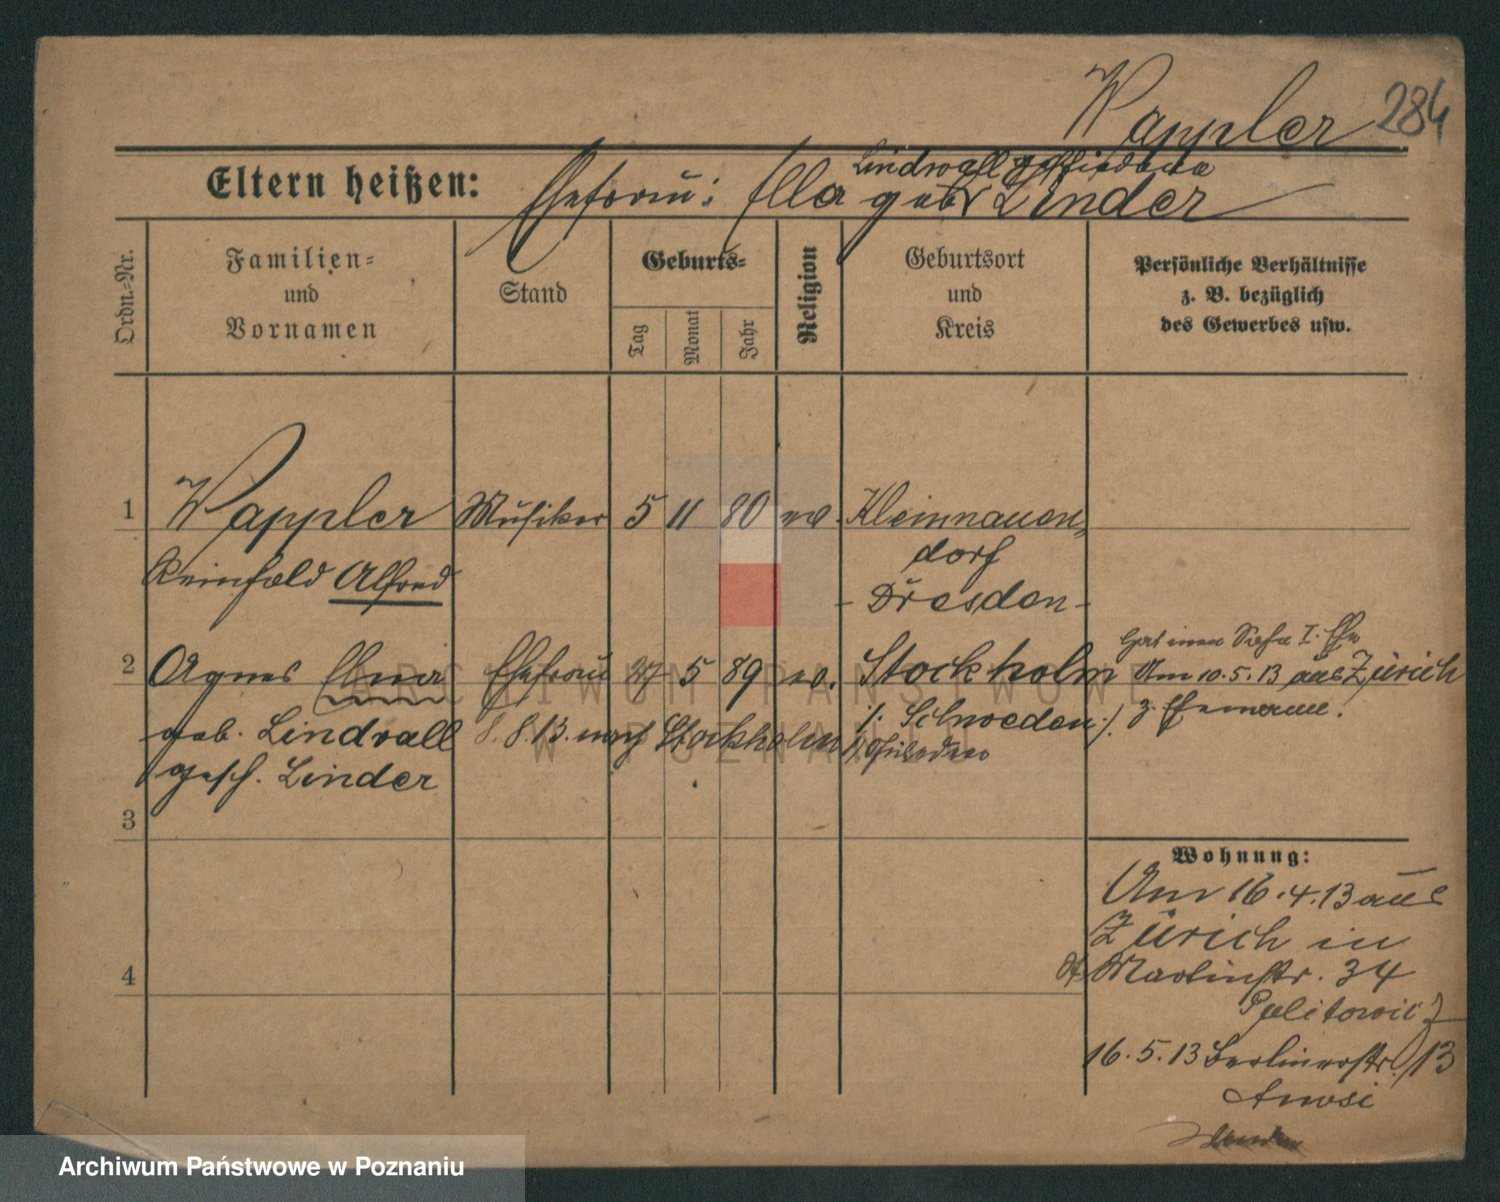 Wappler 284
Lindwall geschiedene
Eltern heißen: Ehefrau: Ella geb. Linder
Ordn.-Nr.
Familien-
und
Vornamen
Stand
Geburts-
Tag
Monat
Jahr
Religion
Geburtsort
und
Kreis
Persönliche Verhältnisse
z. B. bezüglich
des Gewerbes usw.
1 Wappler Musiker 5 11 80 ev. Kleinnauen-
dorf
Reinhold Alfred
- Dresden -
Hat einen Sohn I. Ehe
2 Agnes Ehefrau 27 5 89 ev. Stockholm Am 10.5.13 aus Zürich
geb. Lindvall 8.8.13. nach Stockholm /. Schweden ./. z. Ehemann.
Schweden
gesch. Linder
3
Wohnung:
Am 16.4.13 aus
Zürich in
Martinstr. 34
4
Politowicz
16.5.13 Berlinerstr. 13
ARCHIWUM PAŃSTWOWE
W POZNANIU
Archiwum Państwowe w Poznaniu